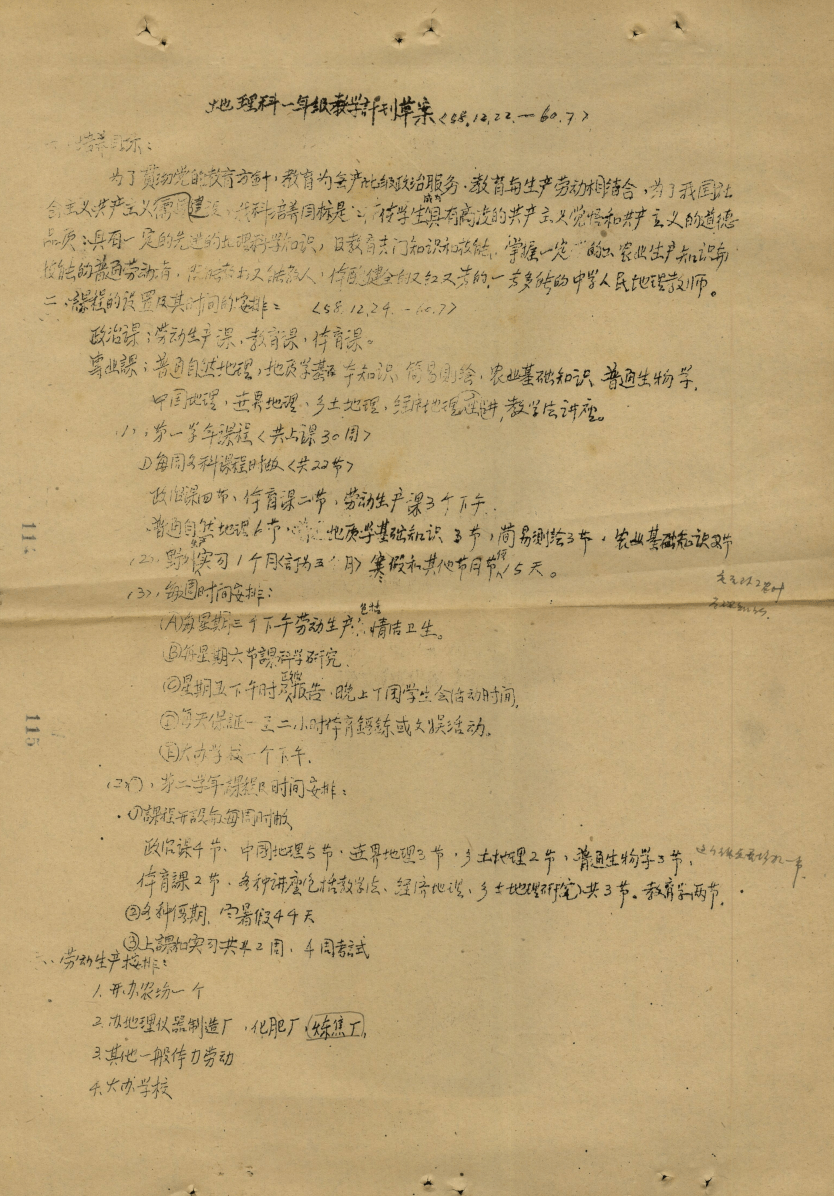 地理科一年级教学计划草案<58.12.22.—60.7>
一、培养目标：
为了贯彻党的教育方针，教育为无产阶级政治服务，教育与生产劳动相结合，为了我国社
会主义共产主义建设，我科培养目标是：使学生成为具有高度的共产主义觉悟和共产主义的道德
品质；具有一定的先进的地理科学知识，及教育专门知识和技能，掌握一定的农业生产知识与
技能的普通劳动者，体魄健全的又红又专的，一专多能的中学人民地理教师。
二、课程的设置及其时间的安排： <58.12.24.—60.7>
政治课；劳动生产课，教育课，体育课。
专业課；普通自然地理，地质学基本知识，简易测绘，农业基础知识，普通生物学，
中国地理，世界地理，乡土地理，经济地理，教学法讲座。
(1)，第一学年课程<共上课30周>
1)每周各科课程时数<共22节>
政治课四节，体育课二节，劳动生产课3个下午.
普通自然地理6节，地质学基础知识 3节，简易测绘3节，农业基础知识2节
(2)，野外实习1个月(訂为三个月) 寒假和其他节日节假15天。
(3)，每週时间安排：
(A)每星期三个下午劳动生产包括清洁卫生。
(B)每星期六节課科学研究.
(C)星期五下午时事报告，晚上下周学生会活动时间，
(D)每天保証一至二小时体育鍛錬或文娱活动。
(E)大办学校一个下午.
(2)，第二学年課程及时间安排：
①課程开設每周时数
政治课4节、中国地理5节，世界地理3节，乡土地理2节，普通生物学3节，
体育課2节，各种讲座包括教学法、经济地理、乡土地理研究)共3节。教育学两节，
②各种假期，寒暑假44天
③上課和实习共 2周，4周考試
、劳动生产按排：
1.开办农场一个
2.办地理仪器制造厂，化肥厂，炼焦厂，
3.其他一般体力劳动
4.大办学校
115